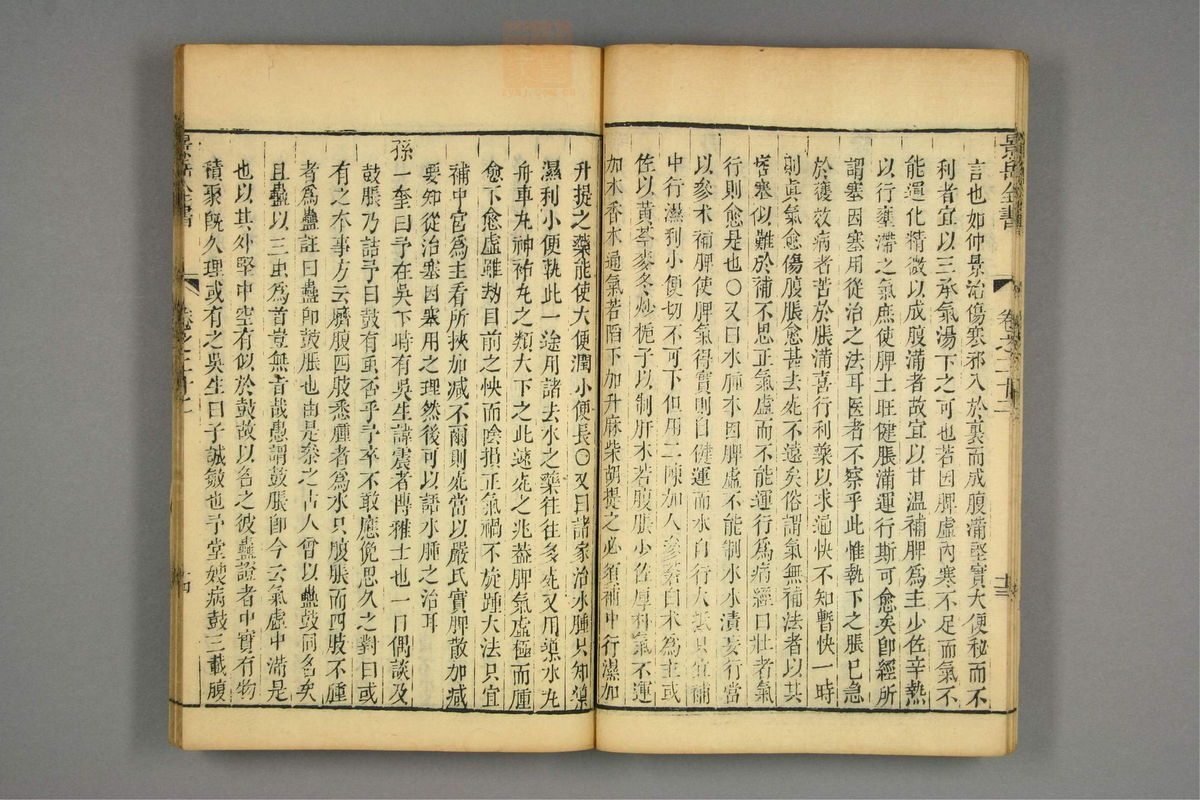 景岳全書
卷之二十二
言也如仲景治傷寒邪入於裏而成腹滿堅實大便秘而不
利者宜以三承氣湯下之可也若因脾虛內寒不足而氣不
能運化精微以成腹滿者故宜以甘溫補脾爲主少佐辛熱
以行壅滯之氣庶使脾土旺健脹滿運行斯可愈矣卽經所
謂塞因塞用從治之法耳医者不察乎此惟執下之脹已急
於獲效病者苦於脹滿喜行利藥以求通快不知暫快一時
則眞氣愈傷腹脹愈甚去死不遠矣俗謂氣無補法者以其
痞塞似難於補不思正氣虛而不能運行爲病經曰壯者氣
行則愈是也○又曰水腫本因脾虛不能制水水漬妄行當
以參术補脾使脾氣得實則自健運而水自行大抵只宜補
中行濕利小便切不可下但用二陳加人參蒼白术爲主或
佐以黃芩麥冬炒梔子以制肝木若腹脹少佐厚朴氣不運
加木香木通氣若陷下加升麻柴胡提之必須補中行濕加
升提之藥能使大便潤小便長○又曰諸家治水腫只知導
濕利小便執此一途用諸去水之藥往往多死又用導水丸
舟車丸神祐丸之類大下之此速死之兆葢脾氣虛極而腫
愈下愈虛雖劫目前之快而陰損正氣禍不旋踵大法只宜
補中宮爲主看所挾加減不爾則死當以嚴氏實脾散加減
要知從治塞因塞用之理然後可以語水腫之治耳
孫一奎曰予在吳下時有吳生諱震者博雅士也一日偶談及
鼓脹乃詰予曰鼓有蟲否乎予卒不敢應俛思久之對曰或
有之本事方云臍腹四肢悉腫者爲水只腹脹而四肢不腫
者爲蠱註曰蠱卽鼓脹也由是參之古人曾以蠱鼓同名矣
且蠱以三虫爲首豈無旨哉愚謂鼓脹卽今云氣虛中滿是
也以其外堅中空有似於鼓故以名之彼蠱證者中實有物
積聚旣久理或有之吳生曰子誠敏也予堂嫂病鼓三載頗
景岳全書
卷之二十二